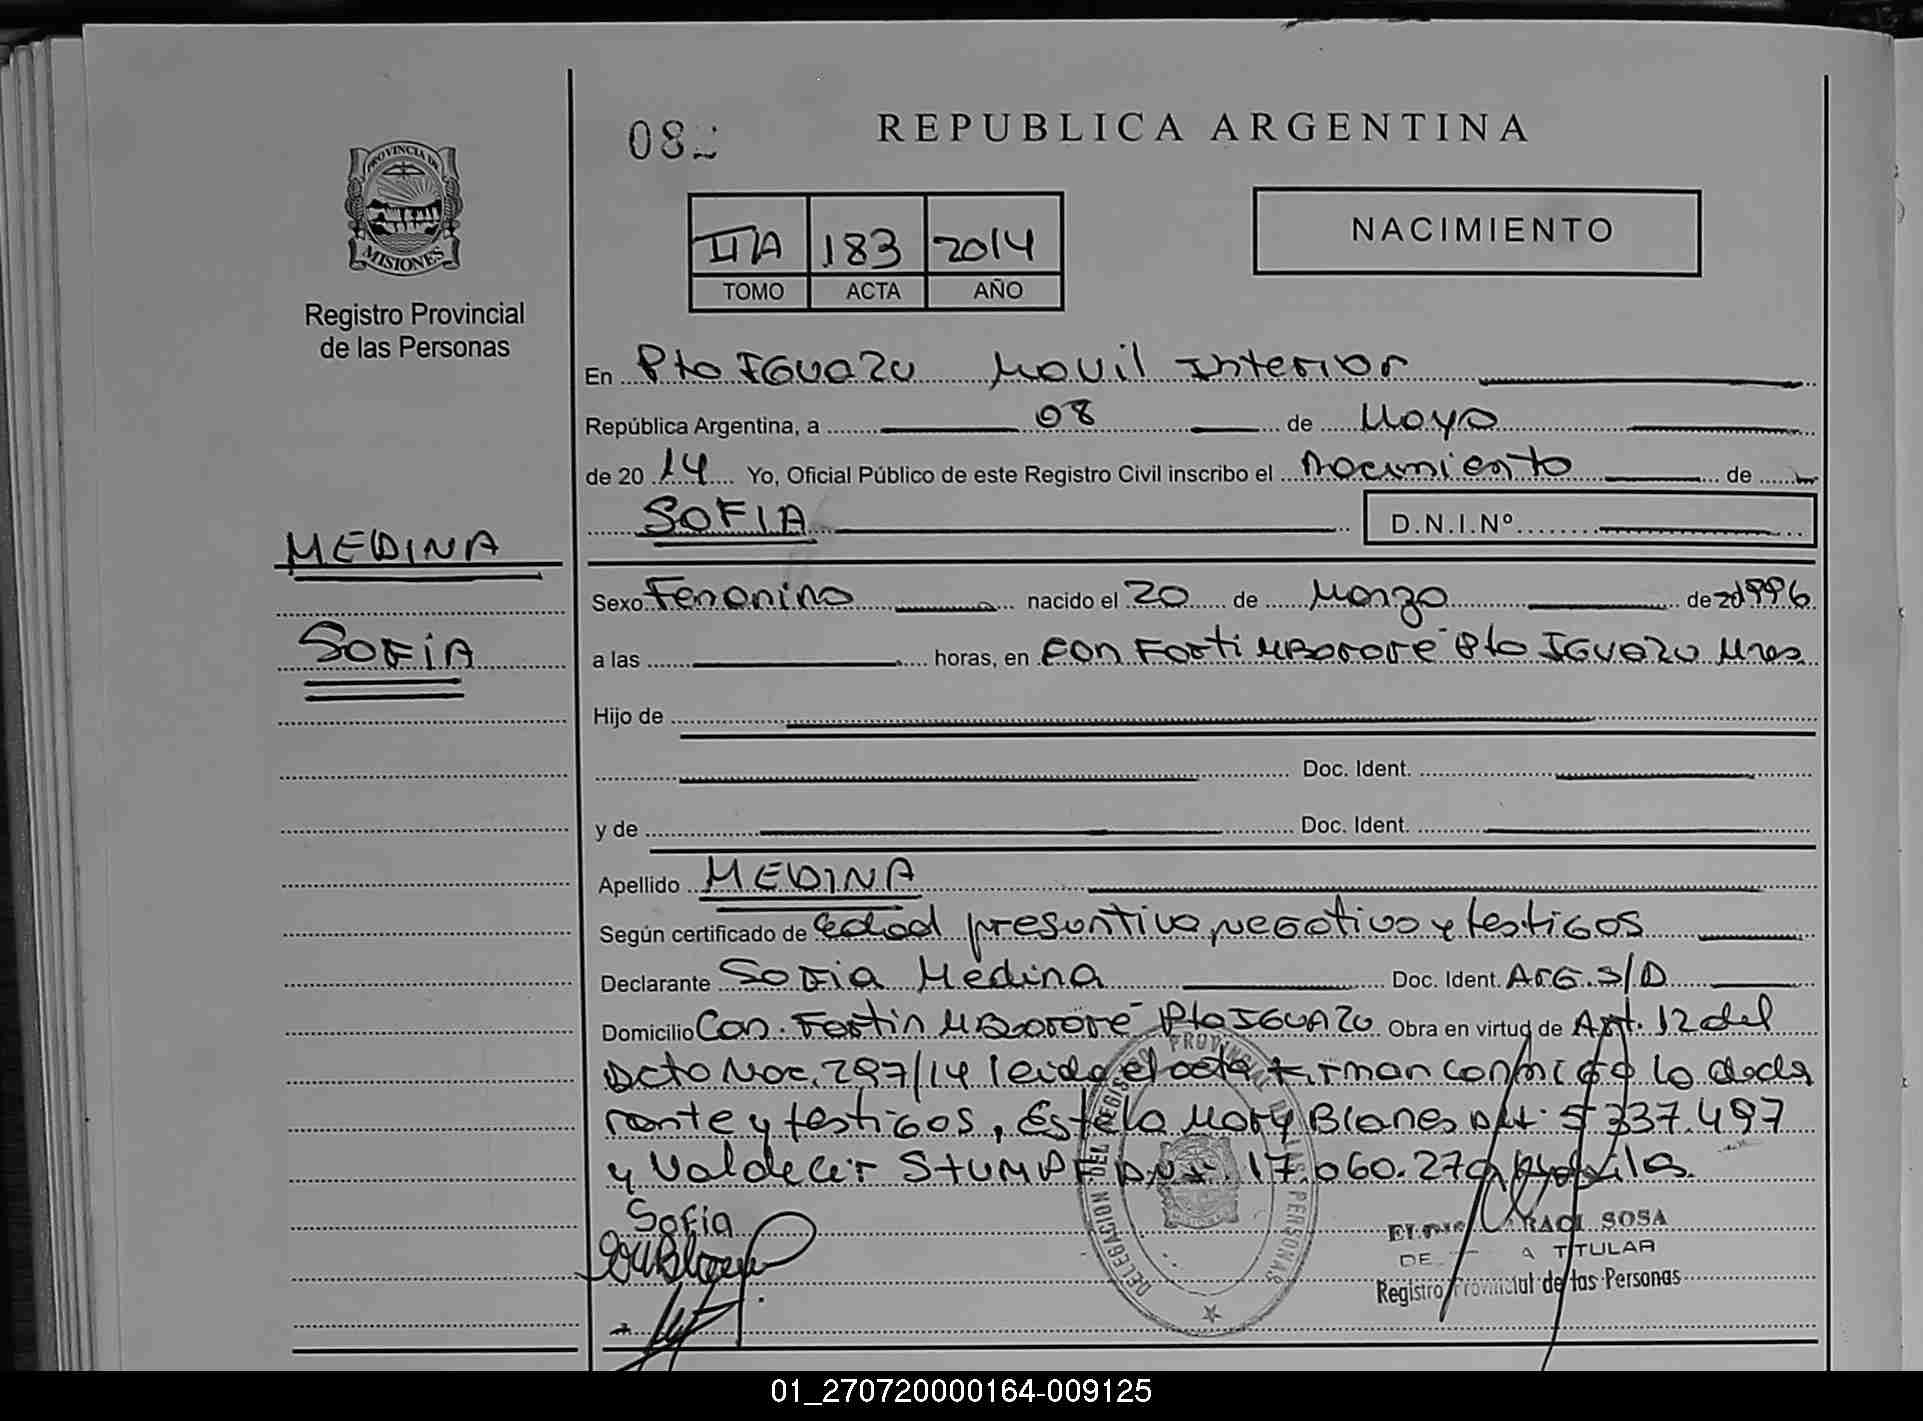 082
REPUBLICA ARGENTINA
PROVINCIA DE
MISIONES
Registro Provincial
de las Personas
IIA 183 2014
TOMO ACTA AÑO
NACIMIENTO
En Pto IGUAZU Movil Interior
República Argentina, a 08 de Mayo
de 20 14 Yo, Oficial Público de este Registro Civil inscribo el nacimiento de
SOFIA D.N.I.Nº
MEDINA
SOFIA
Sexo Femenino nacido el 20 de Marzo de 1996
a las horas, en Con Forti MBororé Pto IGUAZU Mnes
Hijo de
Doc. Ident.
y de Doc. Ident.
Apellido MEDINA
Según certificado de edad presuntiva, negativo y testigos
Declarante Sofia Medina Doc. Ident. ARG. S/D
Domicilio Con. Fortin MBororé Pto IGUAZU Obra en virtud de Art. 12 del
Dcto Nac. 297/14 leida el acta firman conmigo la decla
rante y testigos, Estela Mary Blanes 5 337.497
y Valdecir STUMPF 17.060.270
Sofia
DELEGACION DEL REGISTRO PROVINCIAL DE LAS PERSONAS
SOSA
TITULAR
Registro Provincial de las Personas
01_270720000164-009125